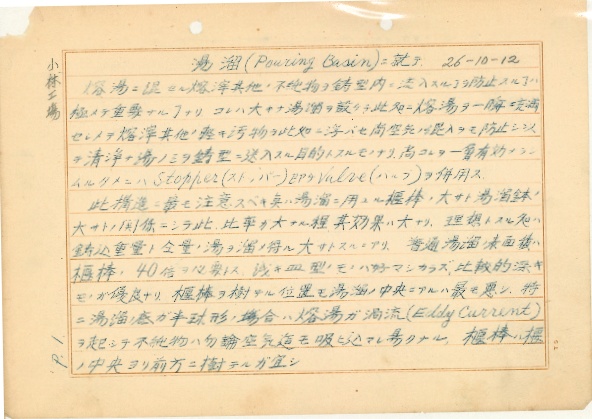 小林工場
湯溜(Pouring Basin)ニ就テ 26-10-12
熔湯ニ混セル熔滓其他ノ不純物ヲ鋳型内ニ流入スル了ヲ防止スル了ハ
極メテ重要ナル了ナリ コレハ大キナ湯溜ヲ設ケテ此処ニ熔湯ヲ一時ニ充満
セシメヲ熔滓其他ノ軽キ汚物ヲ此処ニ浮バセ尚空気ノ混入ヲモ防止シ
ヲ清浄ナ湯ノミヲ鋳型ニ送入スル目的トスルモノナリ 尚コレヲ一層有効ナラシ
ムルタメニハ Stopper(ストッパー)即チ Valve(バルブ)ヲ併用ス
此構造ニ最モ注意スベキ点ハ湯溜ニ用ユル堰棒ノ大サト湯溜鉢ノ
大サトノ関係ニシテ此ノ比率ガ大ナル程其効果ハ大ナリ 理想トスル処ハ
鋳込重量ト全量ノ湯ヲ溜メ得ル大サトスルニアリ 普通湯溜ノ表面積ハ
堰棒ノ 40倍ヲ必要トス 浅キ皿型ノモノハ好マシカラズ 比較的深キ
モノガ優良ナリ 堰棒ヲ樹テル位置モ湯溜ノ中央ニアルハ最モ悪シ 特
ニ湯溜ノ底ガ半球形ノ場合ハ熔湯ガ渦流(Eddy Current)
ヲ起シテ不純物ハ勿論空気迄モ吸ヒ込マレ易クナル 堰棒ハ堰
ノ中央ヨリ前方ニ樹テルガ宜シ
P. 1.